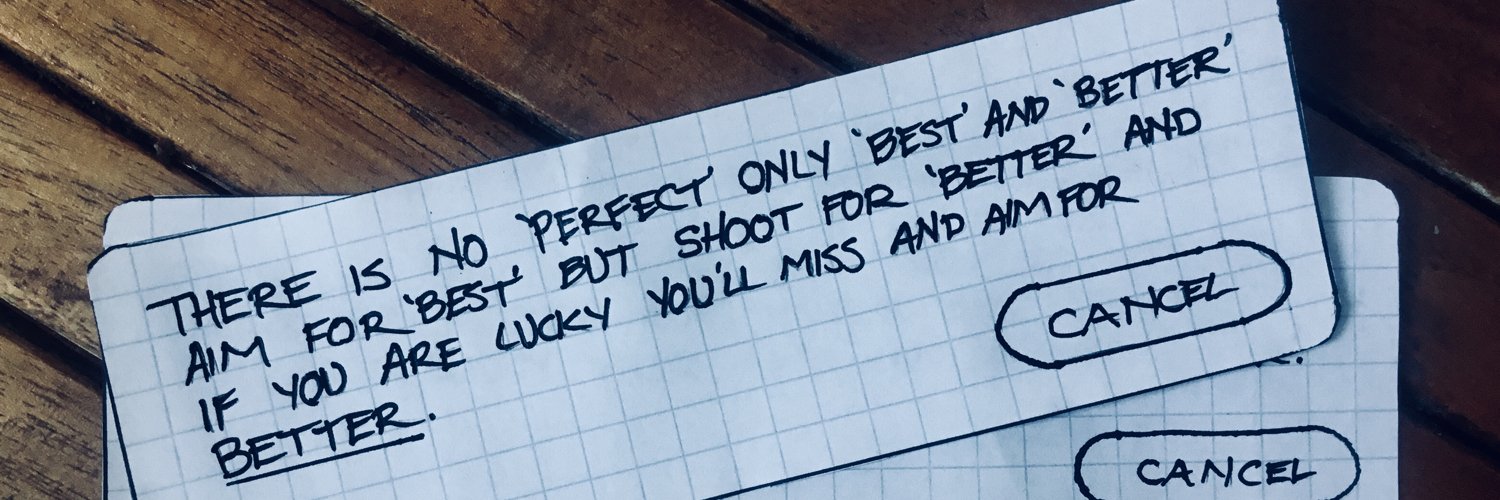 THERE IS NO 'PERFECT' ONLY 'BEST' AND 'BETTER'
AIM FOR 'BEST' BUT SHOOT FOR 'BETTER' AND
IF YOU ARE LUCKY YOU'LL MISS AND AIM FOR
BETTER.
CANCEL
CANCEL